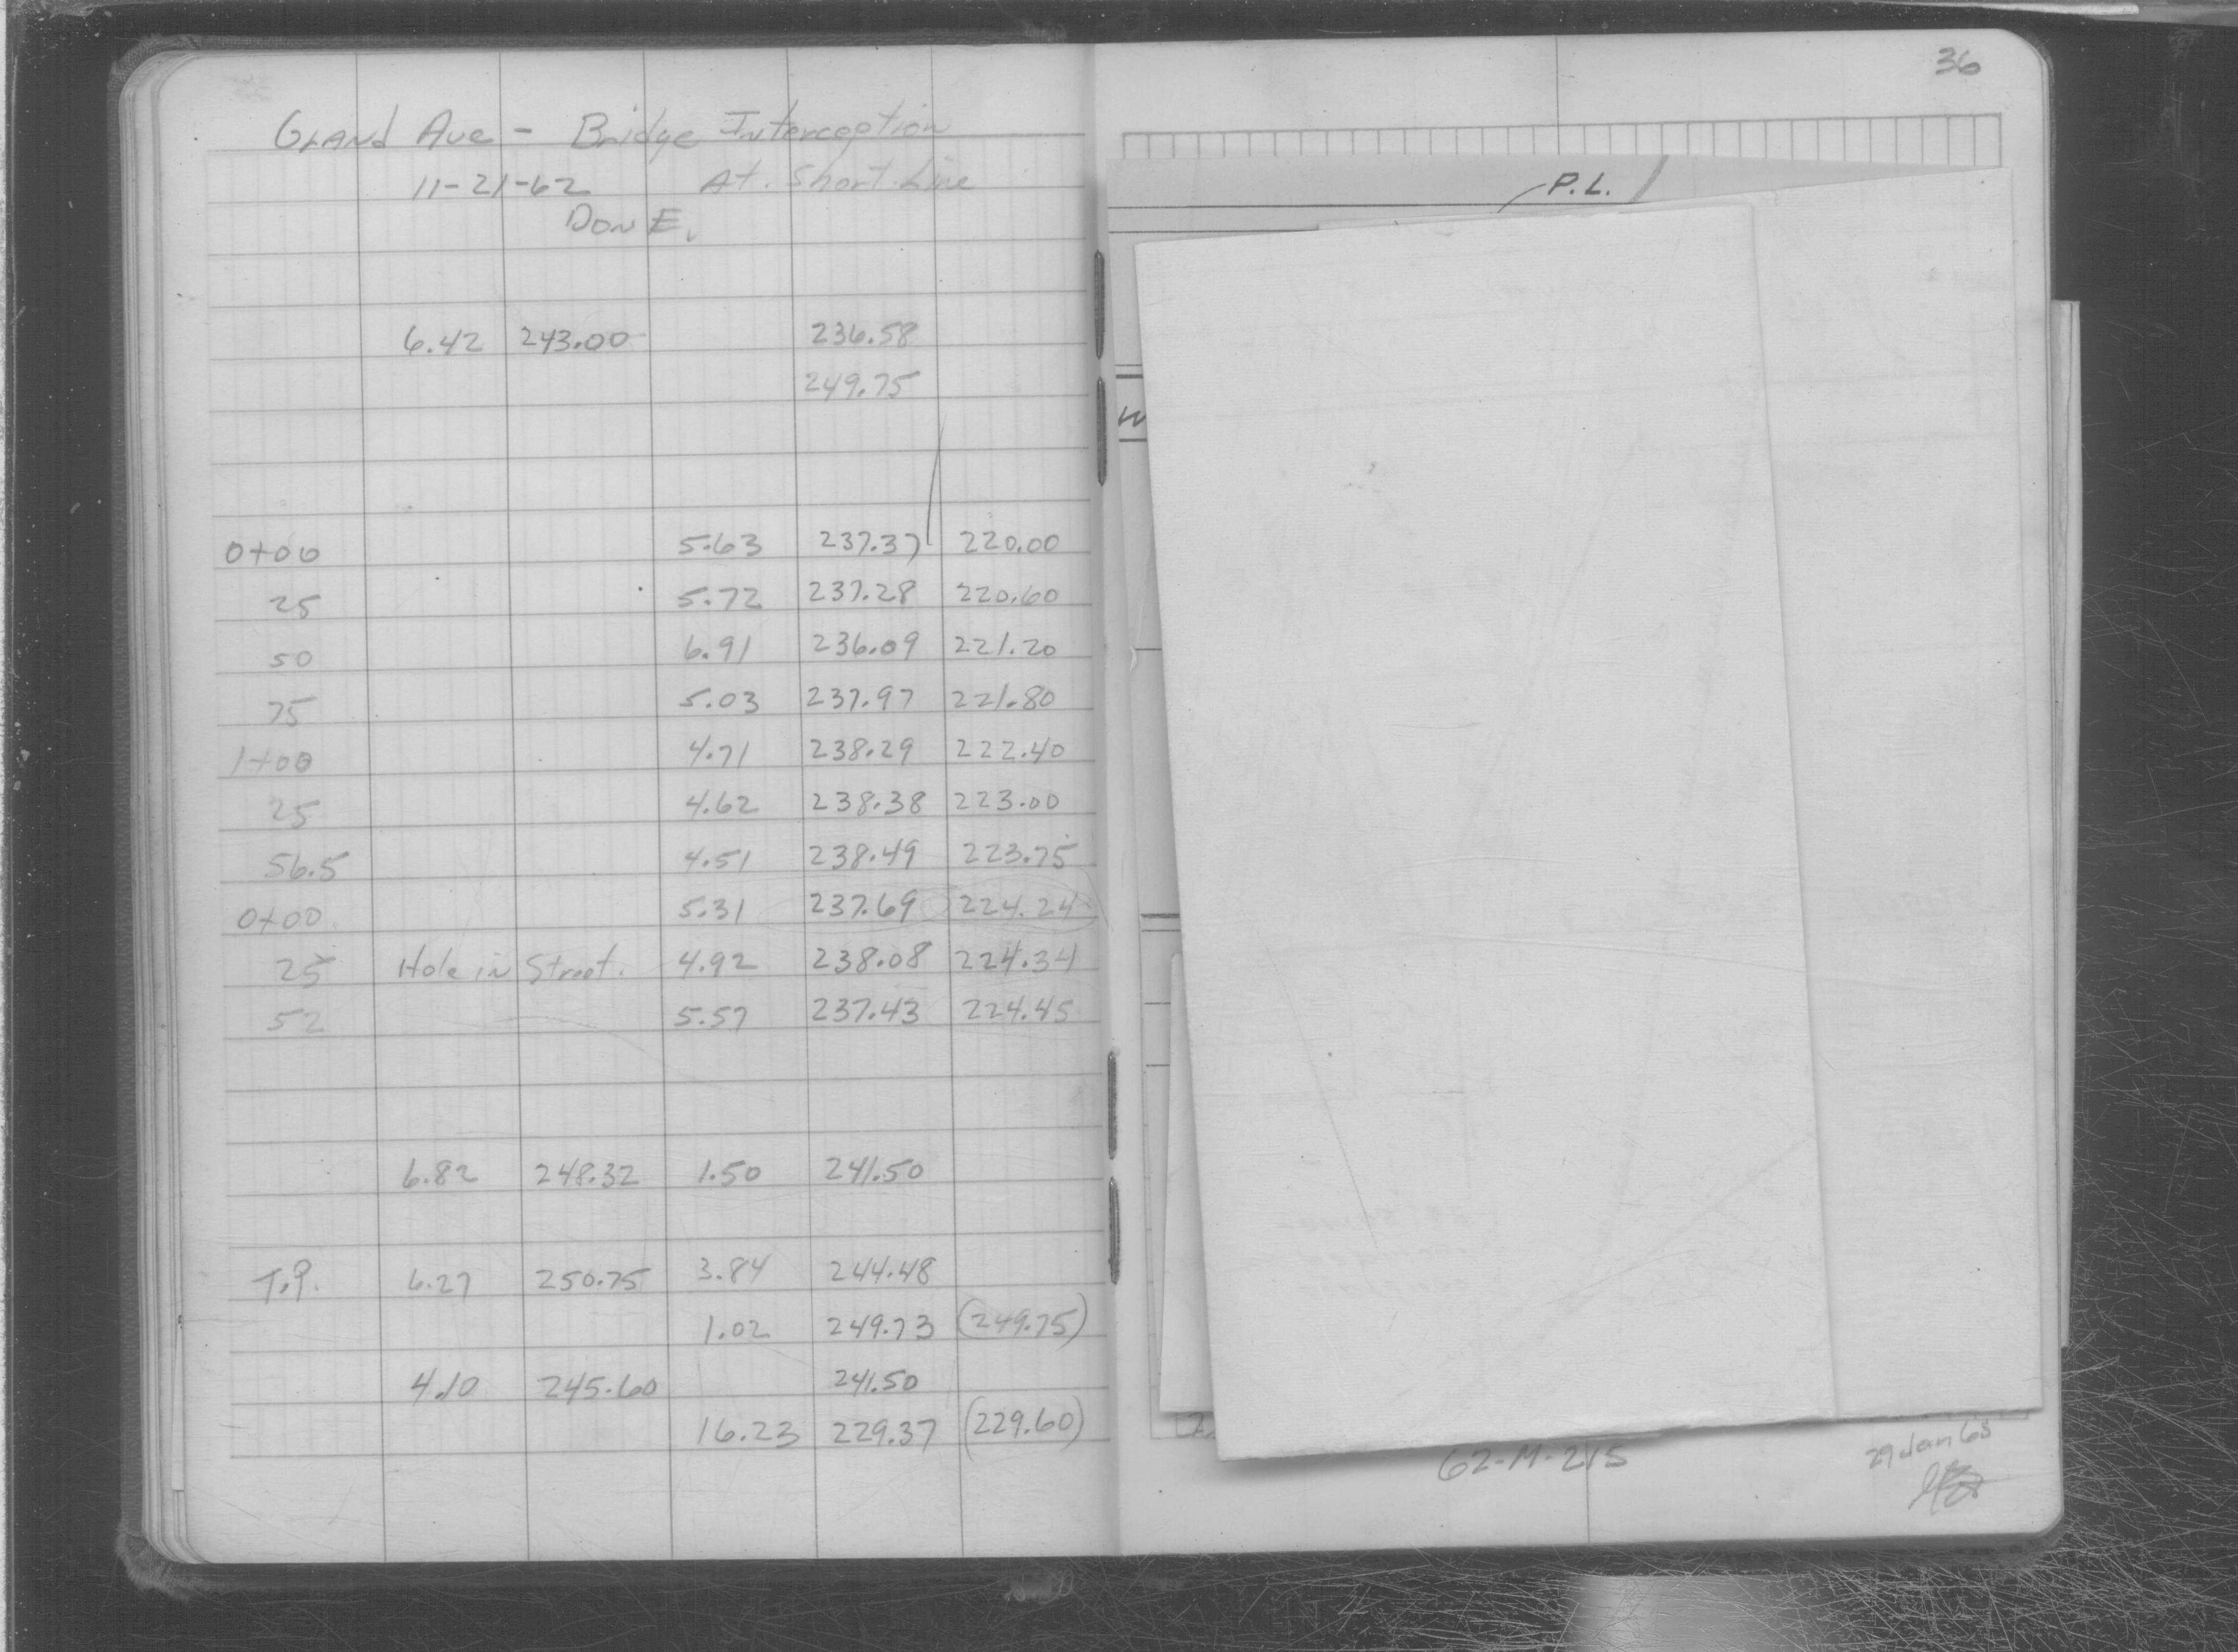 Grand Ave - Bridge Interception
11-21-62 At. Short Line
Don E.
6.42 243.00 236.58
249.75
0+00 5.63 237.37 220.00
25 5.72 237.28 220.60
50 6.91 236.09 221.20
75 5.03 237.97 221.80
1+00 4.71 238.29 222.40
25 4.62 238.38 223.00
56.5 4.51 238.49 223.75
0+00 5.31 237.69 224.24
25 Hole in Street. 4.92 238.08 224.34
52 5.57 237.43 224.45
6.82 248.32 1.50 241.50
T.P. 6.27 250.75 3.84 244.48
1.02 249.73 (249.75)
4.10 245.60 241.50
16.23 229.37 (229.60)
36
P.L.
W
62-M-215
29 Jan 63